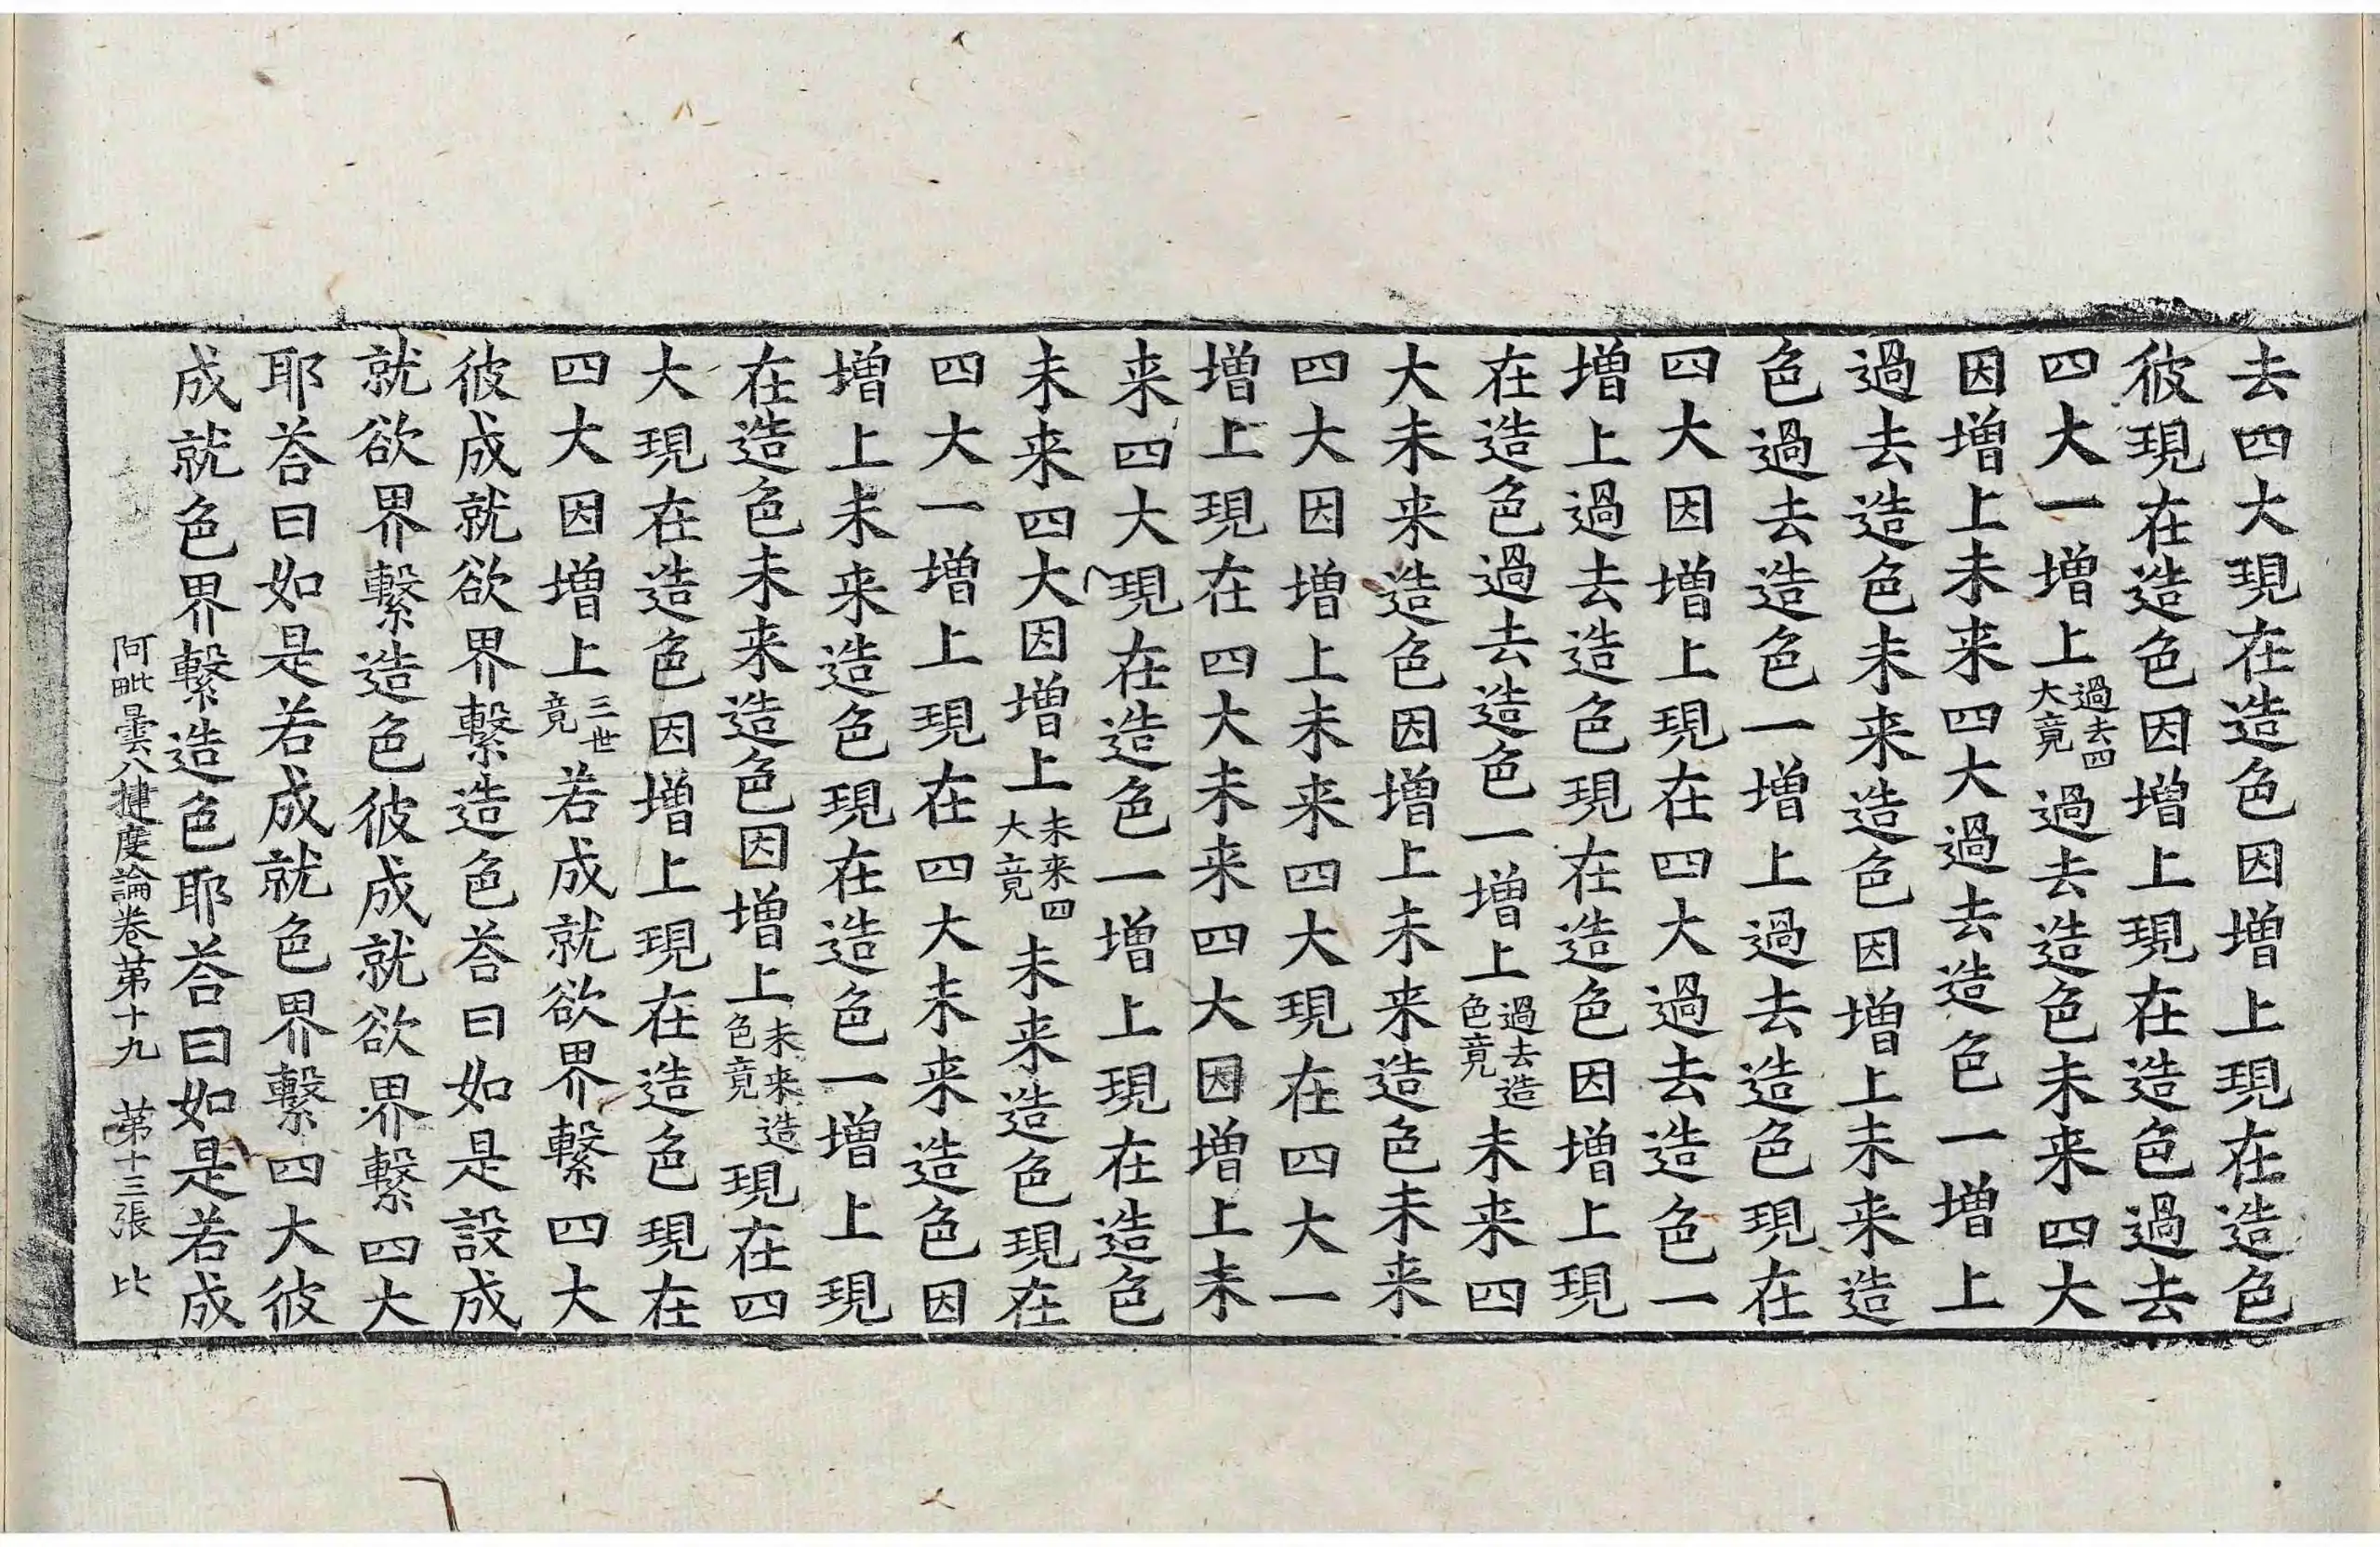 去四大現在造色因增上現在造色
彼現在造色因增上現在造色過去
四大一增上過去四大竟過去造色未来四大
因增上未来四大過去造色一增上
過去造色未来造色因增上未来造
色過去造色一增上過去造色現在
四大因增上現在四大過去造色一
增上過去造色現在造色因增上現
在造色過去造色一增上過去造色竟未来四
大未来造色因增上未来造色未来
四大因增上未来四大現在四大一
增上現在四大未来四大因增上未
来四大現在造色一增上現在造色
未来四大因增上未来四大竟未来造色現在
四大一增上現在四大未来造色因
增上未来造色現在造色一增上現
在造色未来造色因增上未来造色竟現在四
大現在造色因增上現在造色現在
四大因增上三世竟若成就欲界繫四大
彼成就欲界繫造色荅曰如是設成
就欲界繫造色彼成就欲界繫四大
耶荅曰如是若成就色界繫四大彼
成就色界繫造色耶荅曰如是若成
阿毗曇八揵度論卷苐十九 苐十三張 比